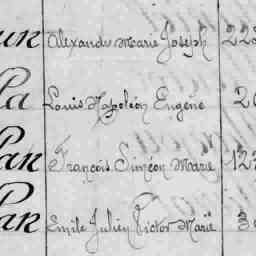 un Alexandre Marie Joseph 22
la Louis Napoléon Eugène 2
Pan François Siméon Marie 12
Pan Emile Julien Victor Marie 3